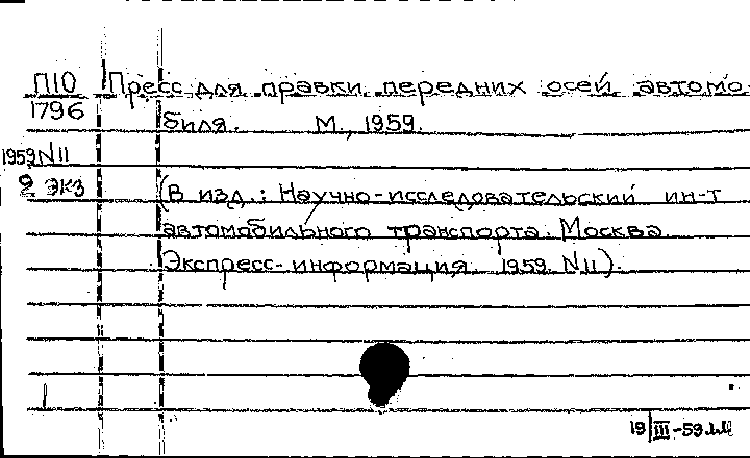 П10 Пресс для правки передних осей автомо-
1796
биля. М., 1959.
1959 N11
2 экз (В изд.: Научно-исследовательский ин-т
автомобильного транспорта. Москва
Экспресс-информация. 1959. N11).
19/III-59